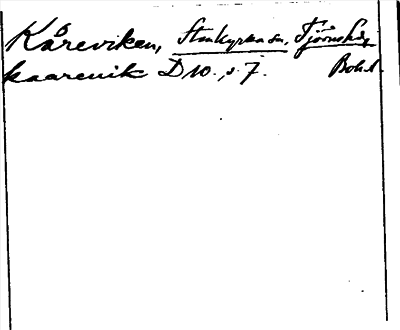 Kåreviken, Stenkyrka sn, Tjörns hd,
kaarevik D 10., s. 7. Bohl.